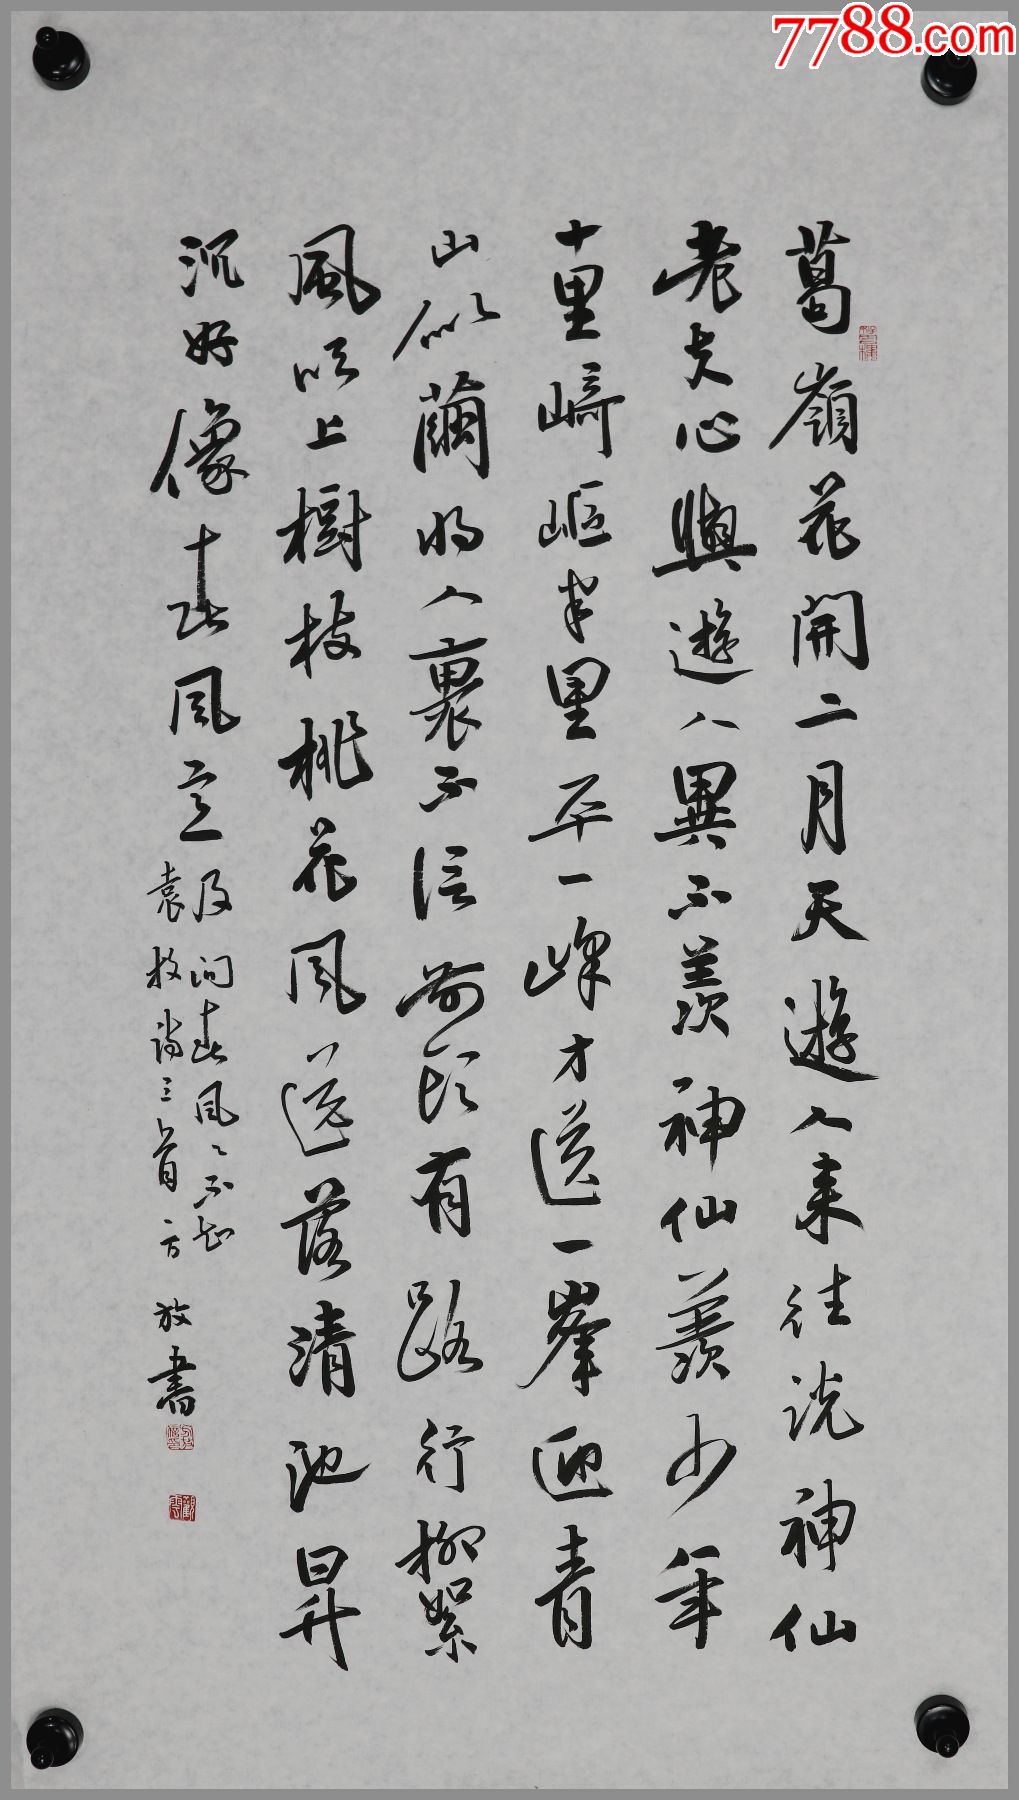 7788.com
葛嶺花開二月天遊人来往説神仙
老夫心與遊人異不羨神仙羨少年
十里崎嶇半里平一峰才送一峯迎青
山似繭将人裹不信前頭有路行柳絮
風吹上樹枝桃花風送落清池昇
沉好像春風意及问春風〻不知
袁枚詩三首方放書